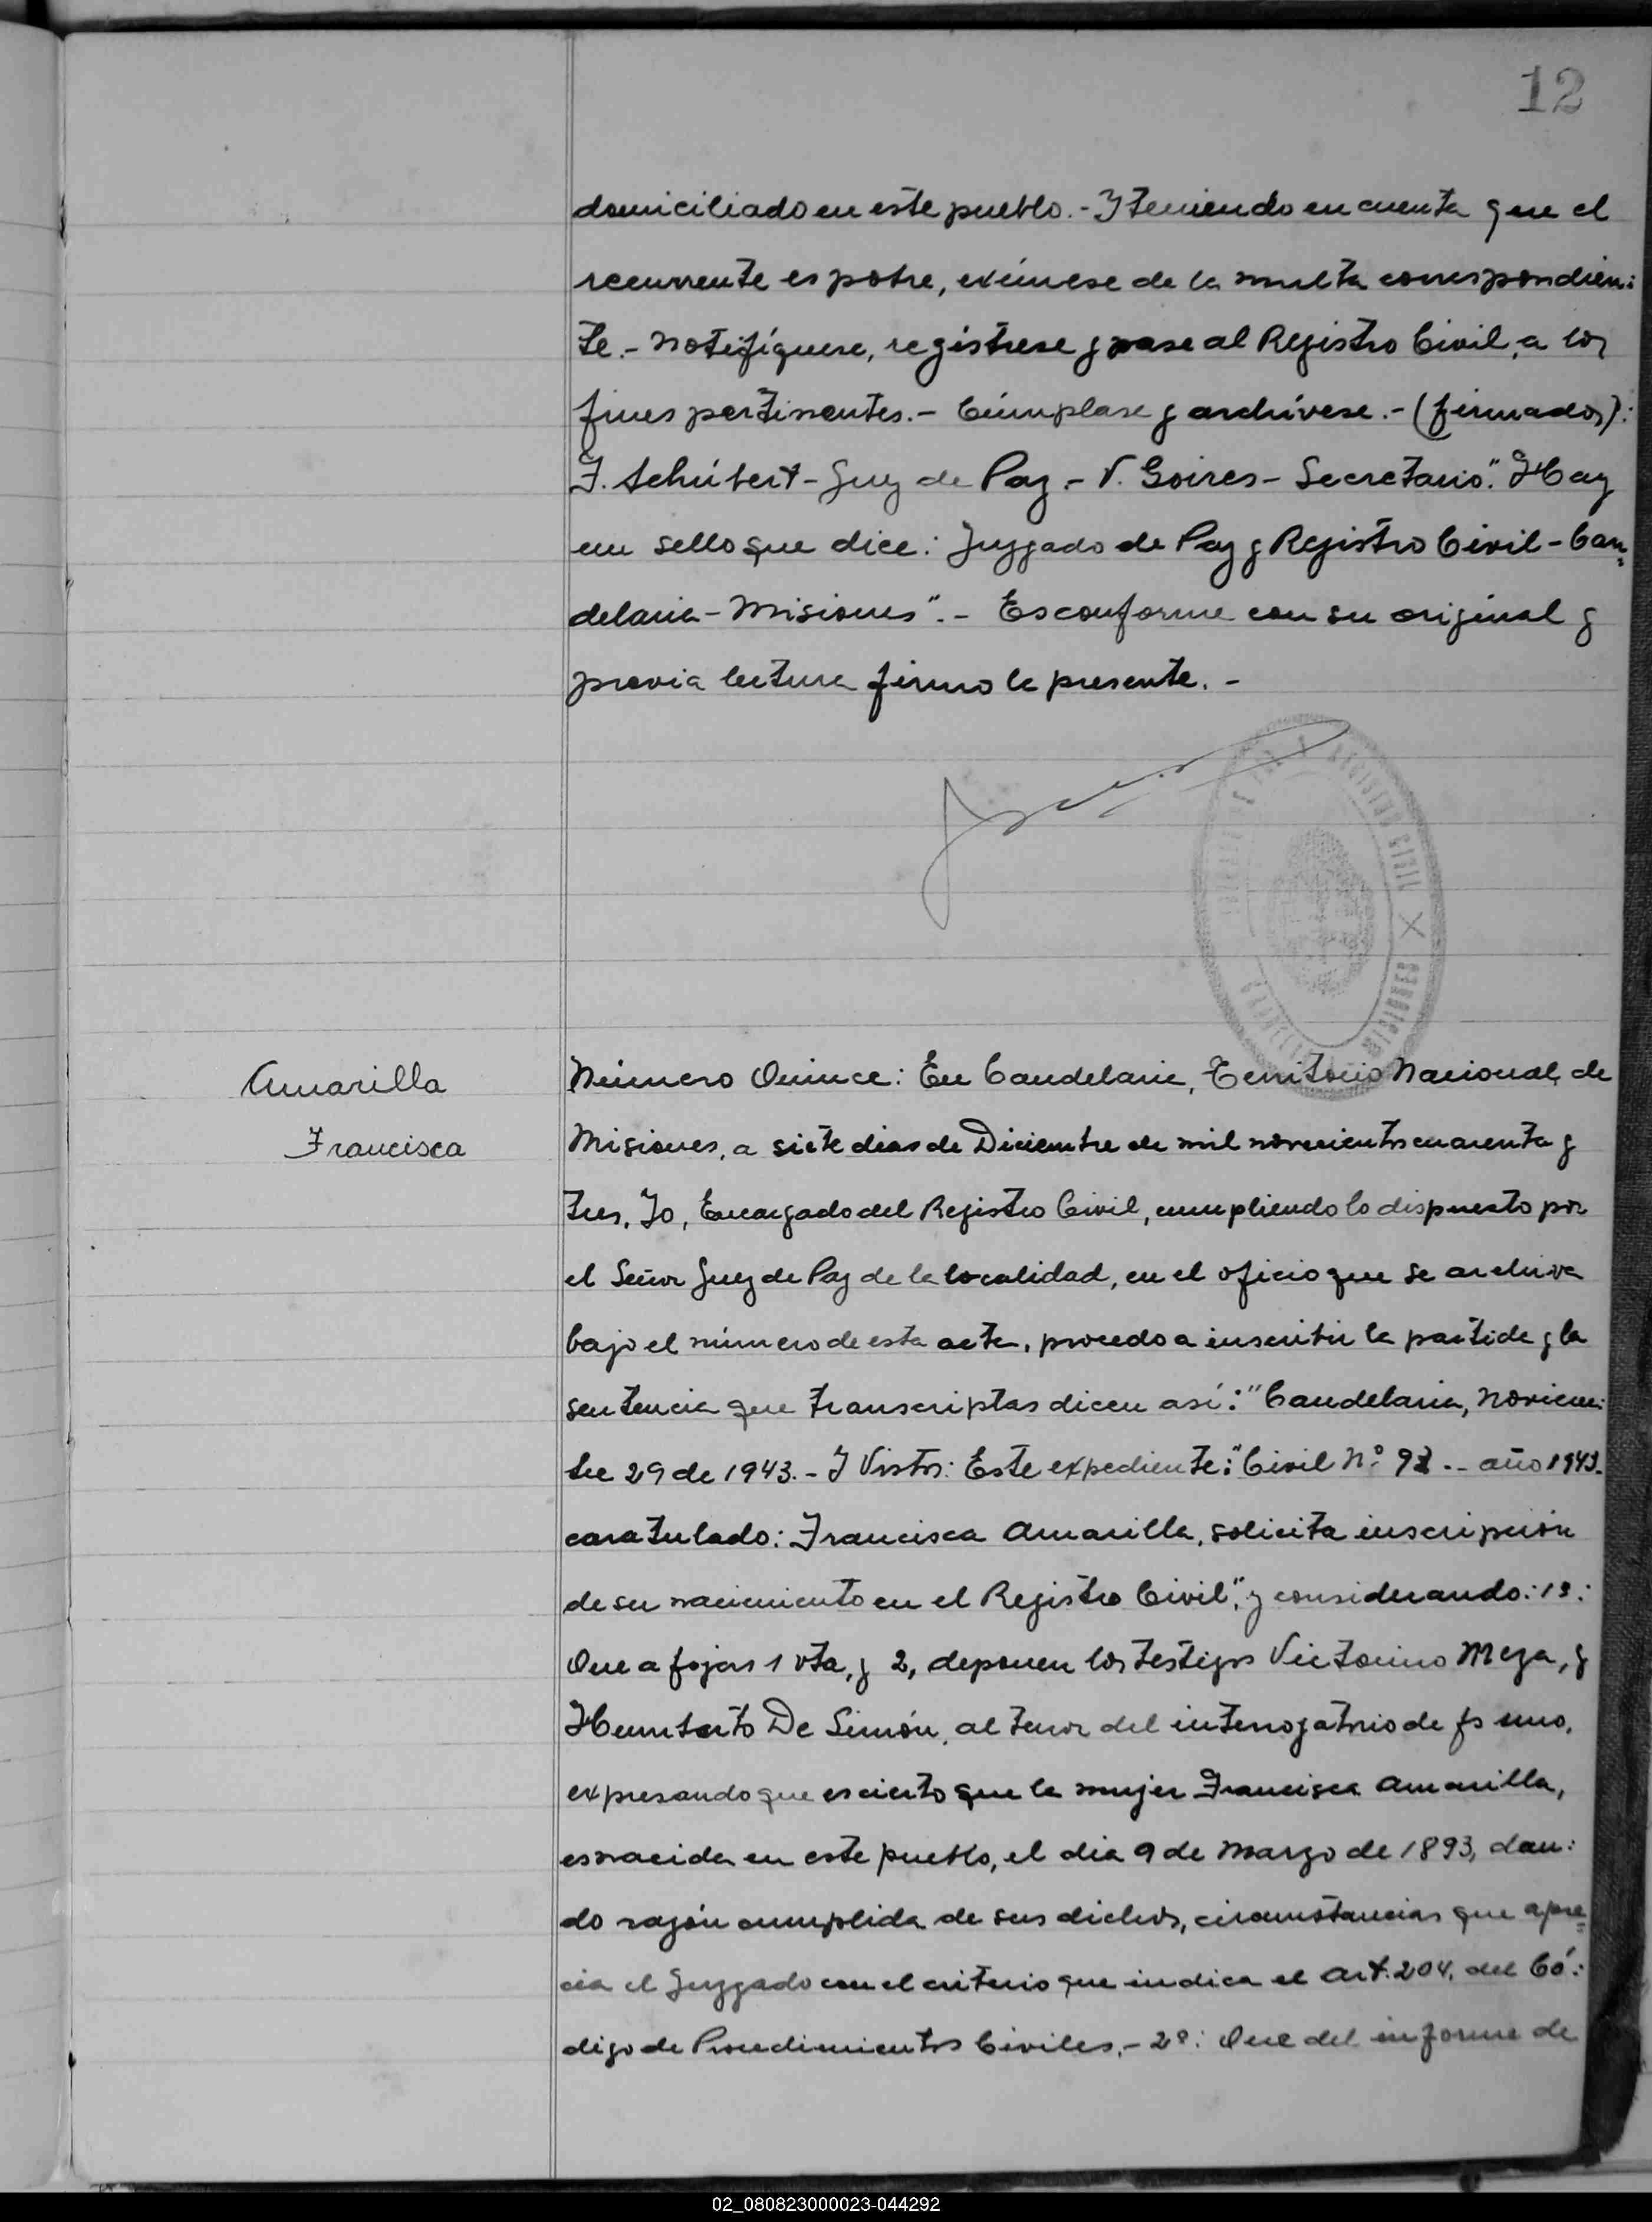 12
domiciliado en este pueblo.- Y teniendo en cuenta que el
recurrente es pobre, exímese de la multa correspondien:
te.- Notifíquese, regístrese y pase al Registro Civil, a los
fines pertinentes.- Cúmplase y archívese.- (firmados):
J. Schúbert - Juez de Paz.- V. Goires - Secretario." Hay
un sello que dice: Juzgado de Paz y Registro Civil - Can=
delaria - Misiones".- Es conforme con su original y
previa lectura firmo la presente.-
Amarilla
Francisca
Número Quince: En Candelaria, Territorio Nacional de
Misiones, a siete dias de Diciembre de mil novecientos cuarenta y
tres, Yo, Encargado del Registro Civil, cumpliendo lo dispuesto por
el Señor Juez de Paz de la localidad, en el oficio que se archiva
bajo el número de esta acta, procedo a inscribir la partida y la
sentencia que transcriptas dicen así: "Candelaria, Noviem:
bre 29 de 1943.- Y Vistos: Este expediente: "Civil Nº 92.- año 1943.
caratulado: Francisca Amarilla, solicita inscripción
de su nacimiento en el Registro Civil", y considerando: 1º:
Que a fojas 1 vta, y 2, deponen los testigos Victorino Meza, y
Humberto De Simón, al tenor del interrogatorio de fs uno,
expresando que es cierto que la mujer Francisca Amarilla,
es nacida en este pueblo, el dia 9 de Marzo de 1893, dan:
do razón cumplida de sus dichos, circunstancias que apre=
cia el Juzgado con el criterio que indica el Art. 204. del Có:
digo de Procedimientos Civiles.- 2º: Que del informe de
02_080823000023-044292